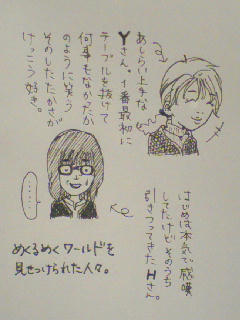 あしらい上手な
Yさん。1番最初に
テーブルを抜けて
何事もなかったか
のように笑う
そのしたたかさが
けっこう好き。
はじめは本気で感嘆
してたけどそのうち
引きつってきたHさん。
・・・・・・
めくるめくワールドを
見せつけられた人々。